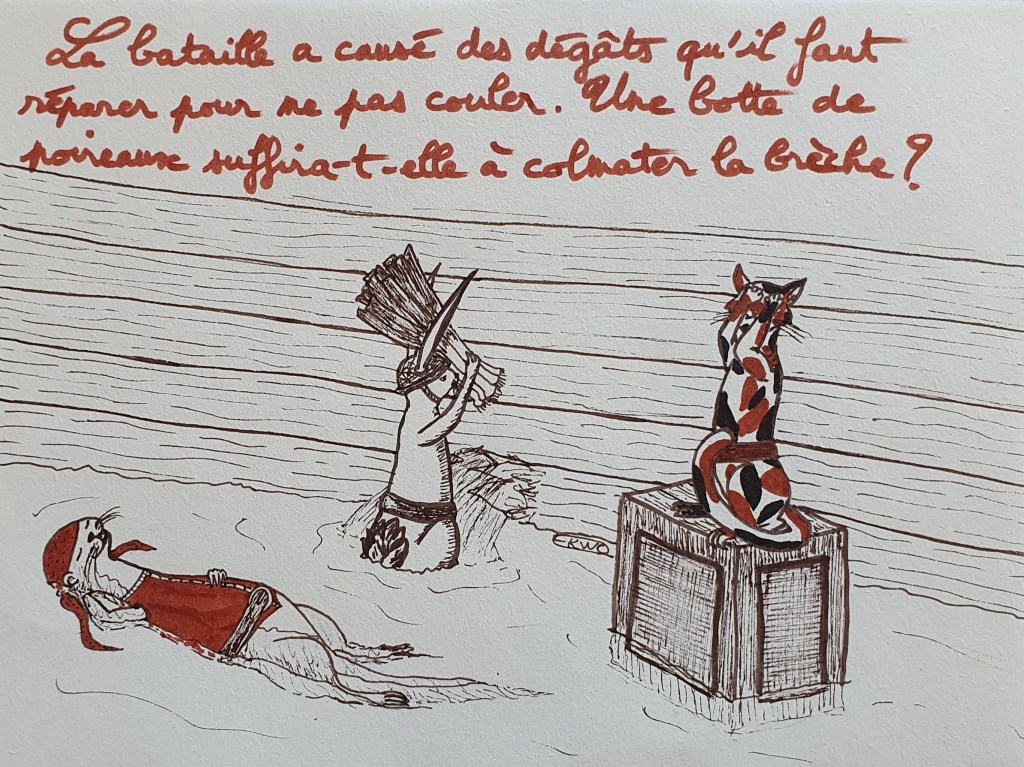 La bataille a causé des dégâts qu'il faut
réparer pour ne pas couler. Une botte de
poireaux suffira-t-elle à colmater la brèche ?
EKWO